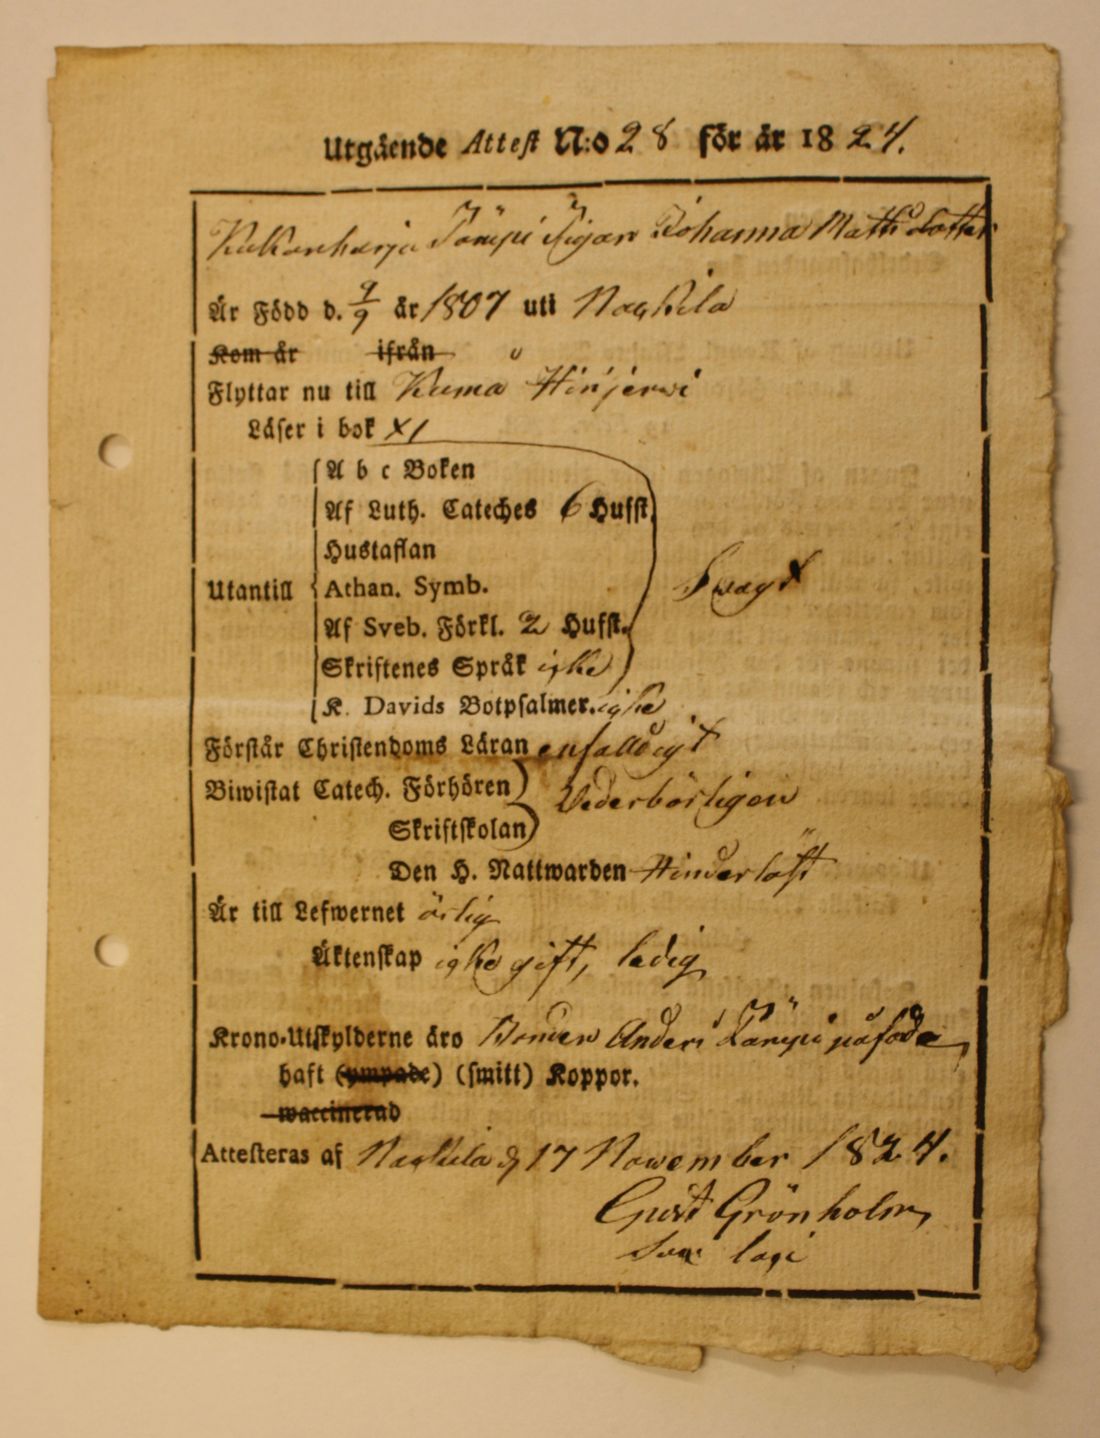 Utgående Attest N:o 28 för år 1824.
Kukonharja Tömpi Pigan Johanna Matts dotter
Är Född d. 9/9 år 1807 uti Nackila
Kom år ifrån
Flyttar nu till Kumo Hinjerwi
Läser i bok XI
A b c Boken
Af Luth. Cateches 6 Hufst.
Hustaflan
Utantill Athan. Symb. Swagt
Af Sveb. Förkl. 2 Hufst.
Skriftenes Språk icke
K. Davids Botpsalmer. icke
Förstår Christendoms Läran enfalldigt
Biwistat Catech. Förhören Vederbörligen
Skriftskolan
Den H. Nattwarden Hinderlöst
Är till Lefwernet ärlig
Äktenskap icke gift, ledig
Krono-Utskylderne äro Bonden Anders Tömpi påförde
haft (ympade) (smitt) Koppor.
waccinerad
Attesteras af Nackila d 17 November 1824.
Gust Grönholm
loci